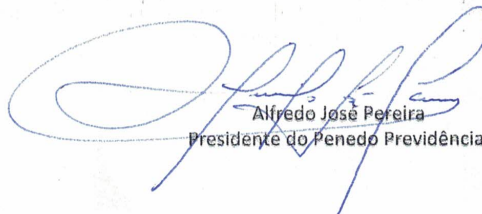 Alfredo José Pereira
Presidente do Penedo Previdência